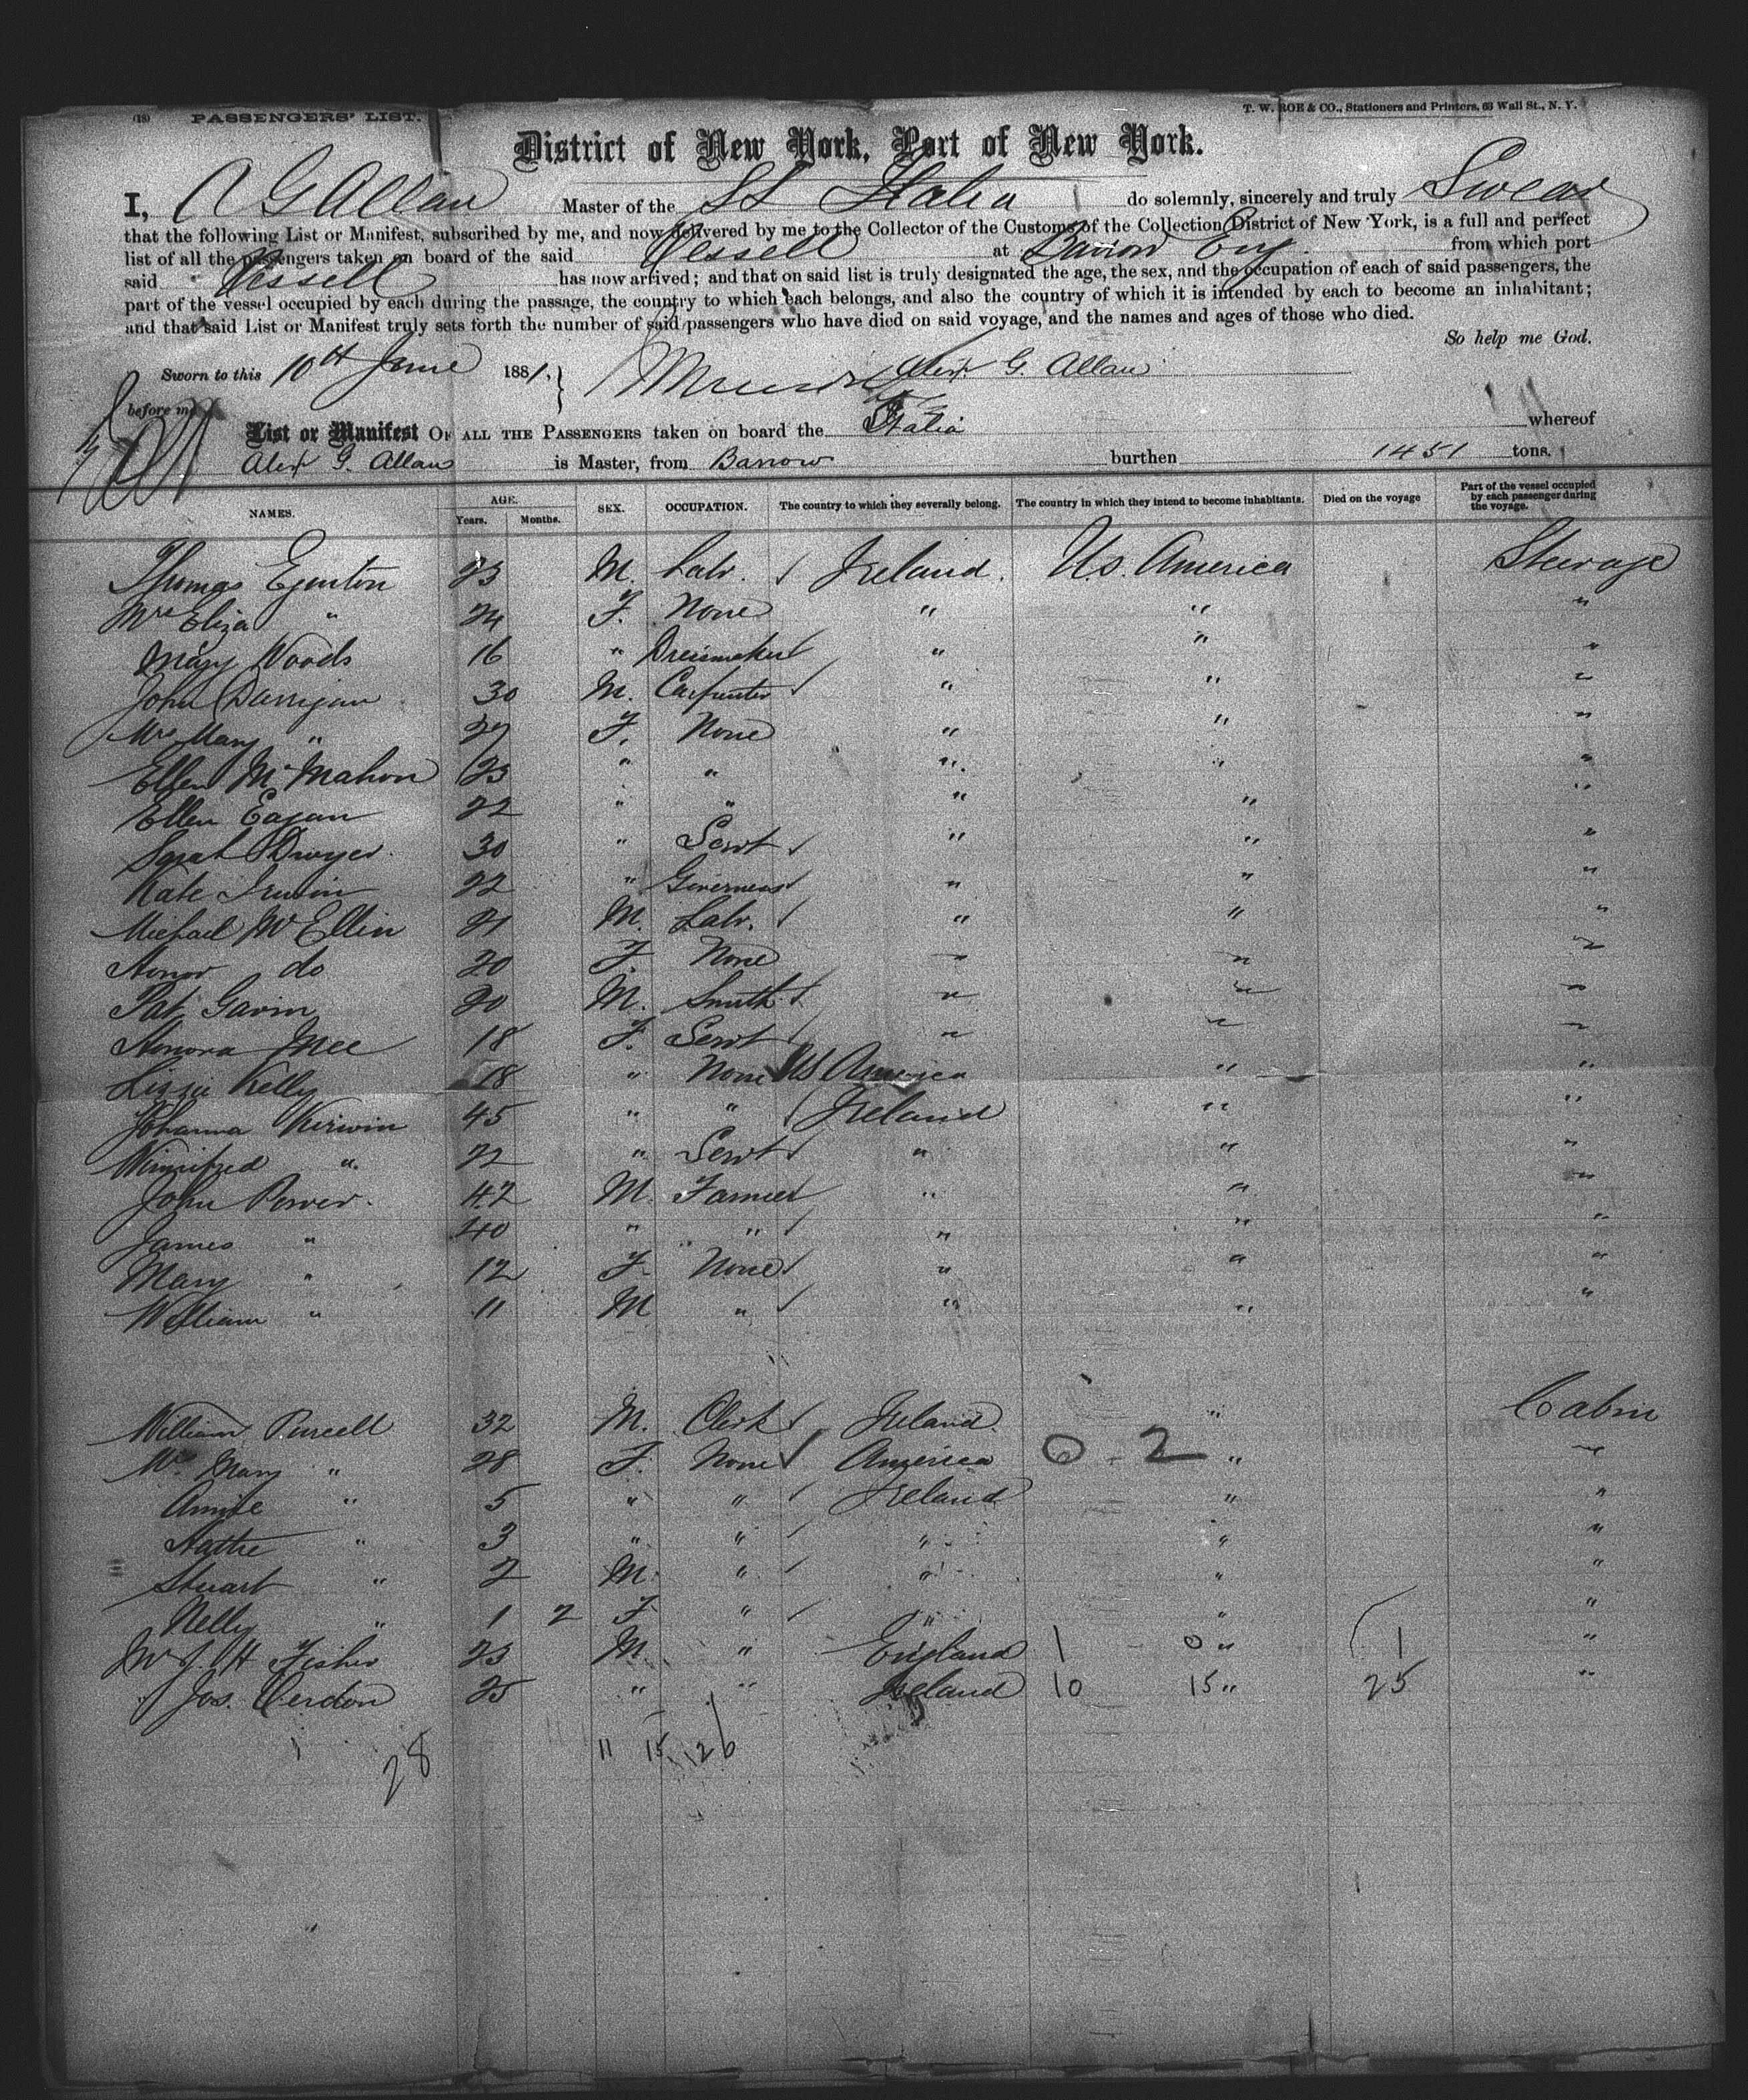 (18) PASSENGERS' LIST.
T. W. ROE & CO., Stationers and Printers, 63 Wall St., N. Y.
District of New York, Port of New York.
I, A G Allan Master of the SS Italia do solemnly, sincerely and truly Swear
that the following List or Manifest, subscribed by me, and now delivered by me to the Collector of the Customs of the Collection District of New York, is a full and perfect
list of all the passengers taken on board of the said Vessell at Barrow Eng from which port
said Vessell has now arrived; and that on said list is truly designated the age, the sex, and the occupation of each of said passengers, the
part of the vessel occupied by each during the passage, the country to which each belongs, and also the country of which it is intended by each to become an inhabitant;
and that said List or Manifest truly sets forth the number of said passengers who have died on said voyage, and the names and ages of those who died.
So help me God.
Sworn to this 10th June 1881, Alexr G. Allan
before me
List or Manifest OF ALL THE PASSENGERS taken on board the Italia whereof
Alexr G. Allan is Master, from Barrow burthen 1451 tons.
NAMES. AGE. Years. Months. SEX. OCCUPATION. The country to which they severally belong. The country in which they intend to become inhabitants. Died on the voyage Part of the vessel occupied by each passenger during the voyage.
Thomas Egenton 23 M. Labr. Ireland. U.S. America Steerage
Mrs Eliza " 24 F. None " " "
Mary Woods 16 " Dressmaker " " "
John Darrigan 30 M. Carpenter " " "
Mrs Mary " 27 F. None " " "
Ellen McMahon 23 " " " " "
Ellen Eagan 22 " " " " "
Sarah Dwyer 30 " Servt " " "
Kate Irwin 22 " Governess " " "
Michael McEllin 21 M. Labr. " " "
Honor do 20 F. None " " "
Pat. Gavin 20 M. Smith " " "
Honora Mee 18 F. Servt " " "
Lizzie Kelly 18 " None US America " "
Johanna Kirwin 45 " " Ireland " "
Winnifred " 22 " Servt " " "
John Power 42 M. Farmer " " "
James " 40 " " " " "
Mary " 12 F. None " " "
William " 11 M " " " "
William Purcell 32 M. Clerk Ireland. " Cabin
Mrs Mary " 28 F. None America 0 2 " "
Annie " 5 " " Ireland " "
Hattie " 3 " " " " "
Stuart " 2 M. " " " "
Nelly " 1 2 F " " " "
Mr J. H Fisher 23 M. " England 1 0 " 1 "
Jos. Verdon 25 " " Ireland 10 15 " 25 "
28 11 15 26